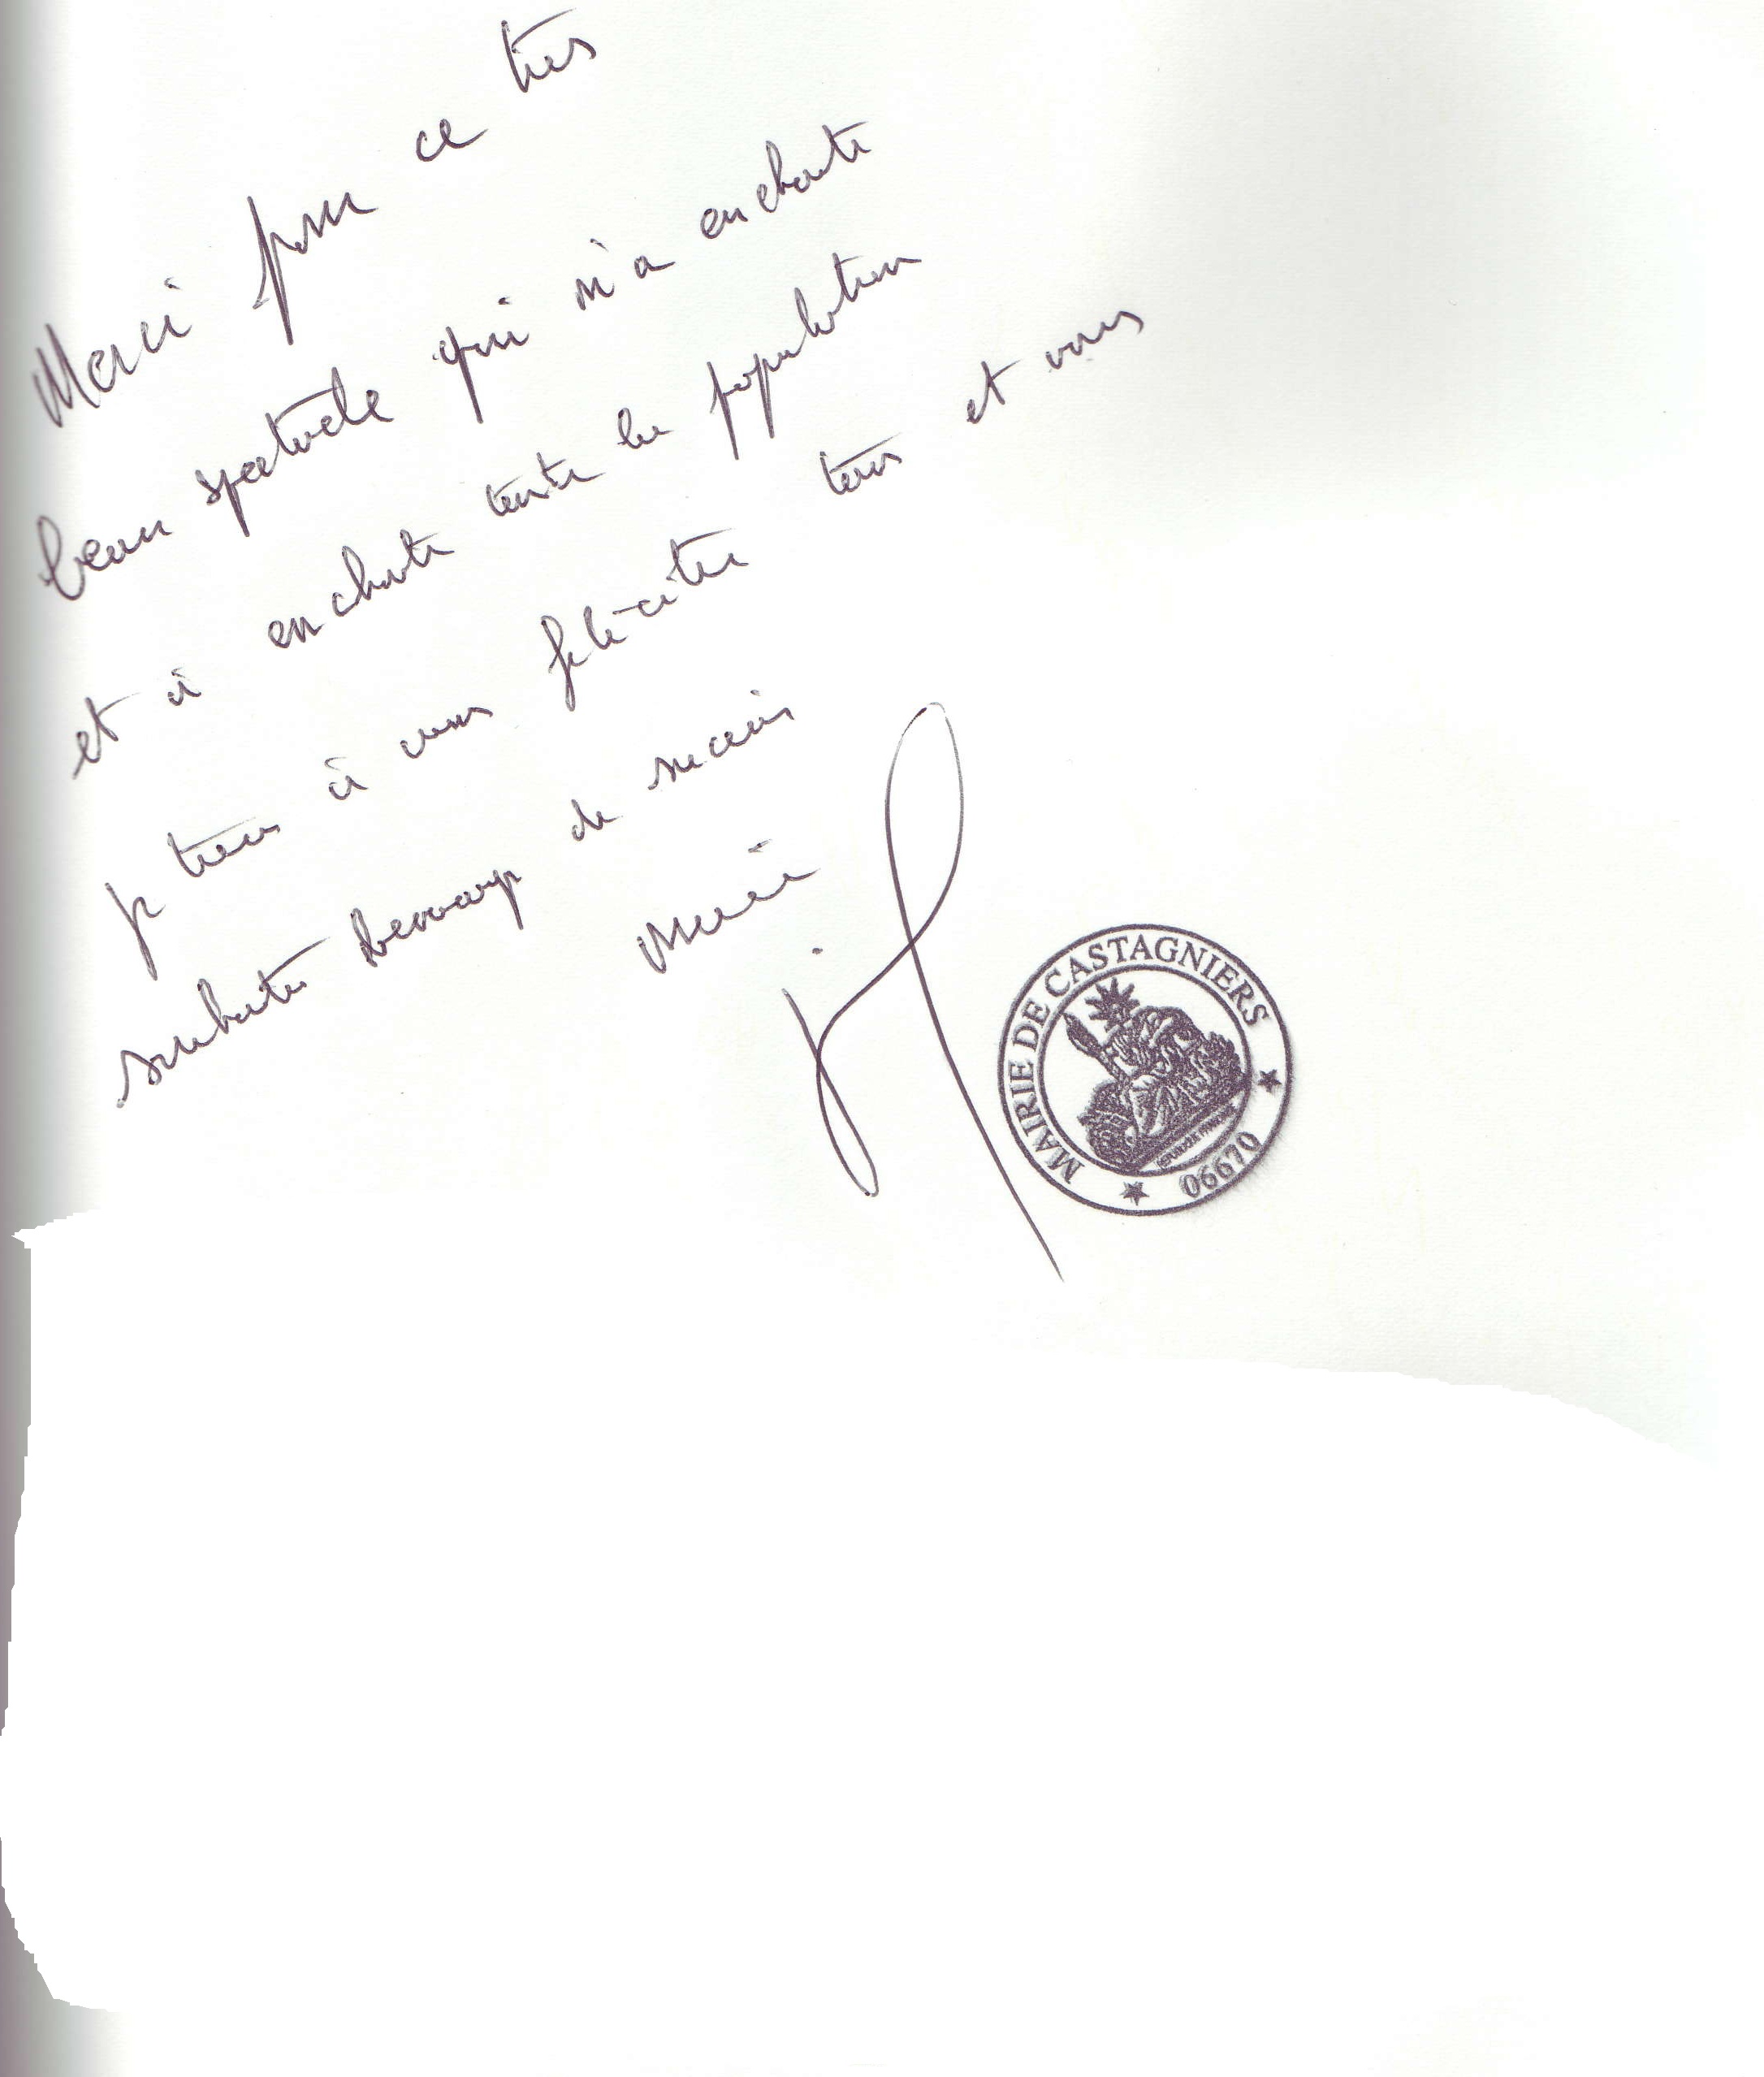 Merci pour ce très
beau spectacle qui m'a enchanté
et a enchanté toute la population
je tiens à vous féliciter tous et vous
souhaiter beaucoup de succès
merci
MAIRIE DE CASTAGNIERS
06670